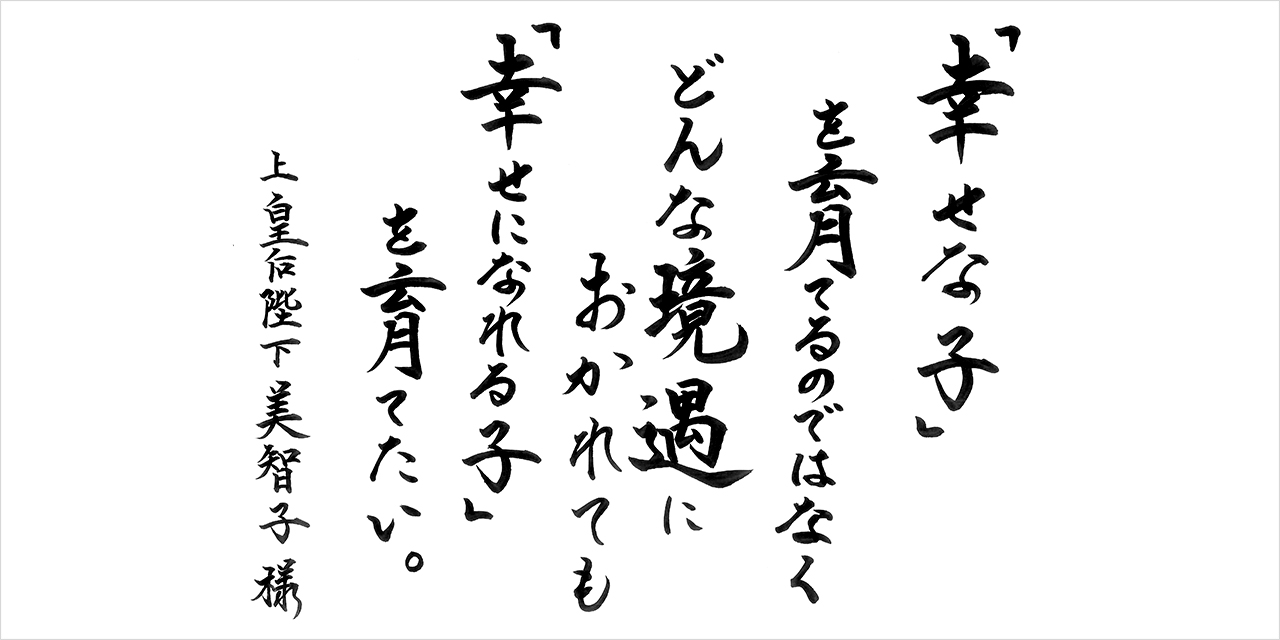 「幸せな子」
を育てるのではなく
どんな境遇に
おかれても
「幸せになれる子」
を育てたい。
上皇后陛下美智子様